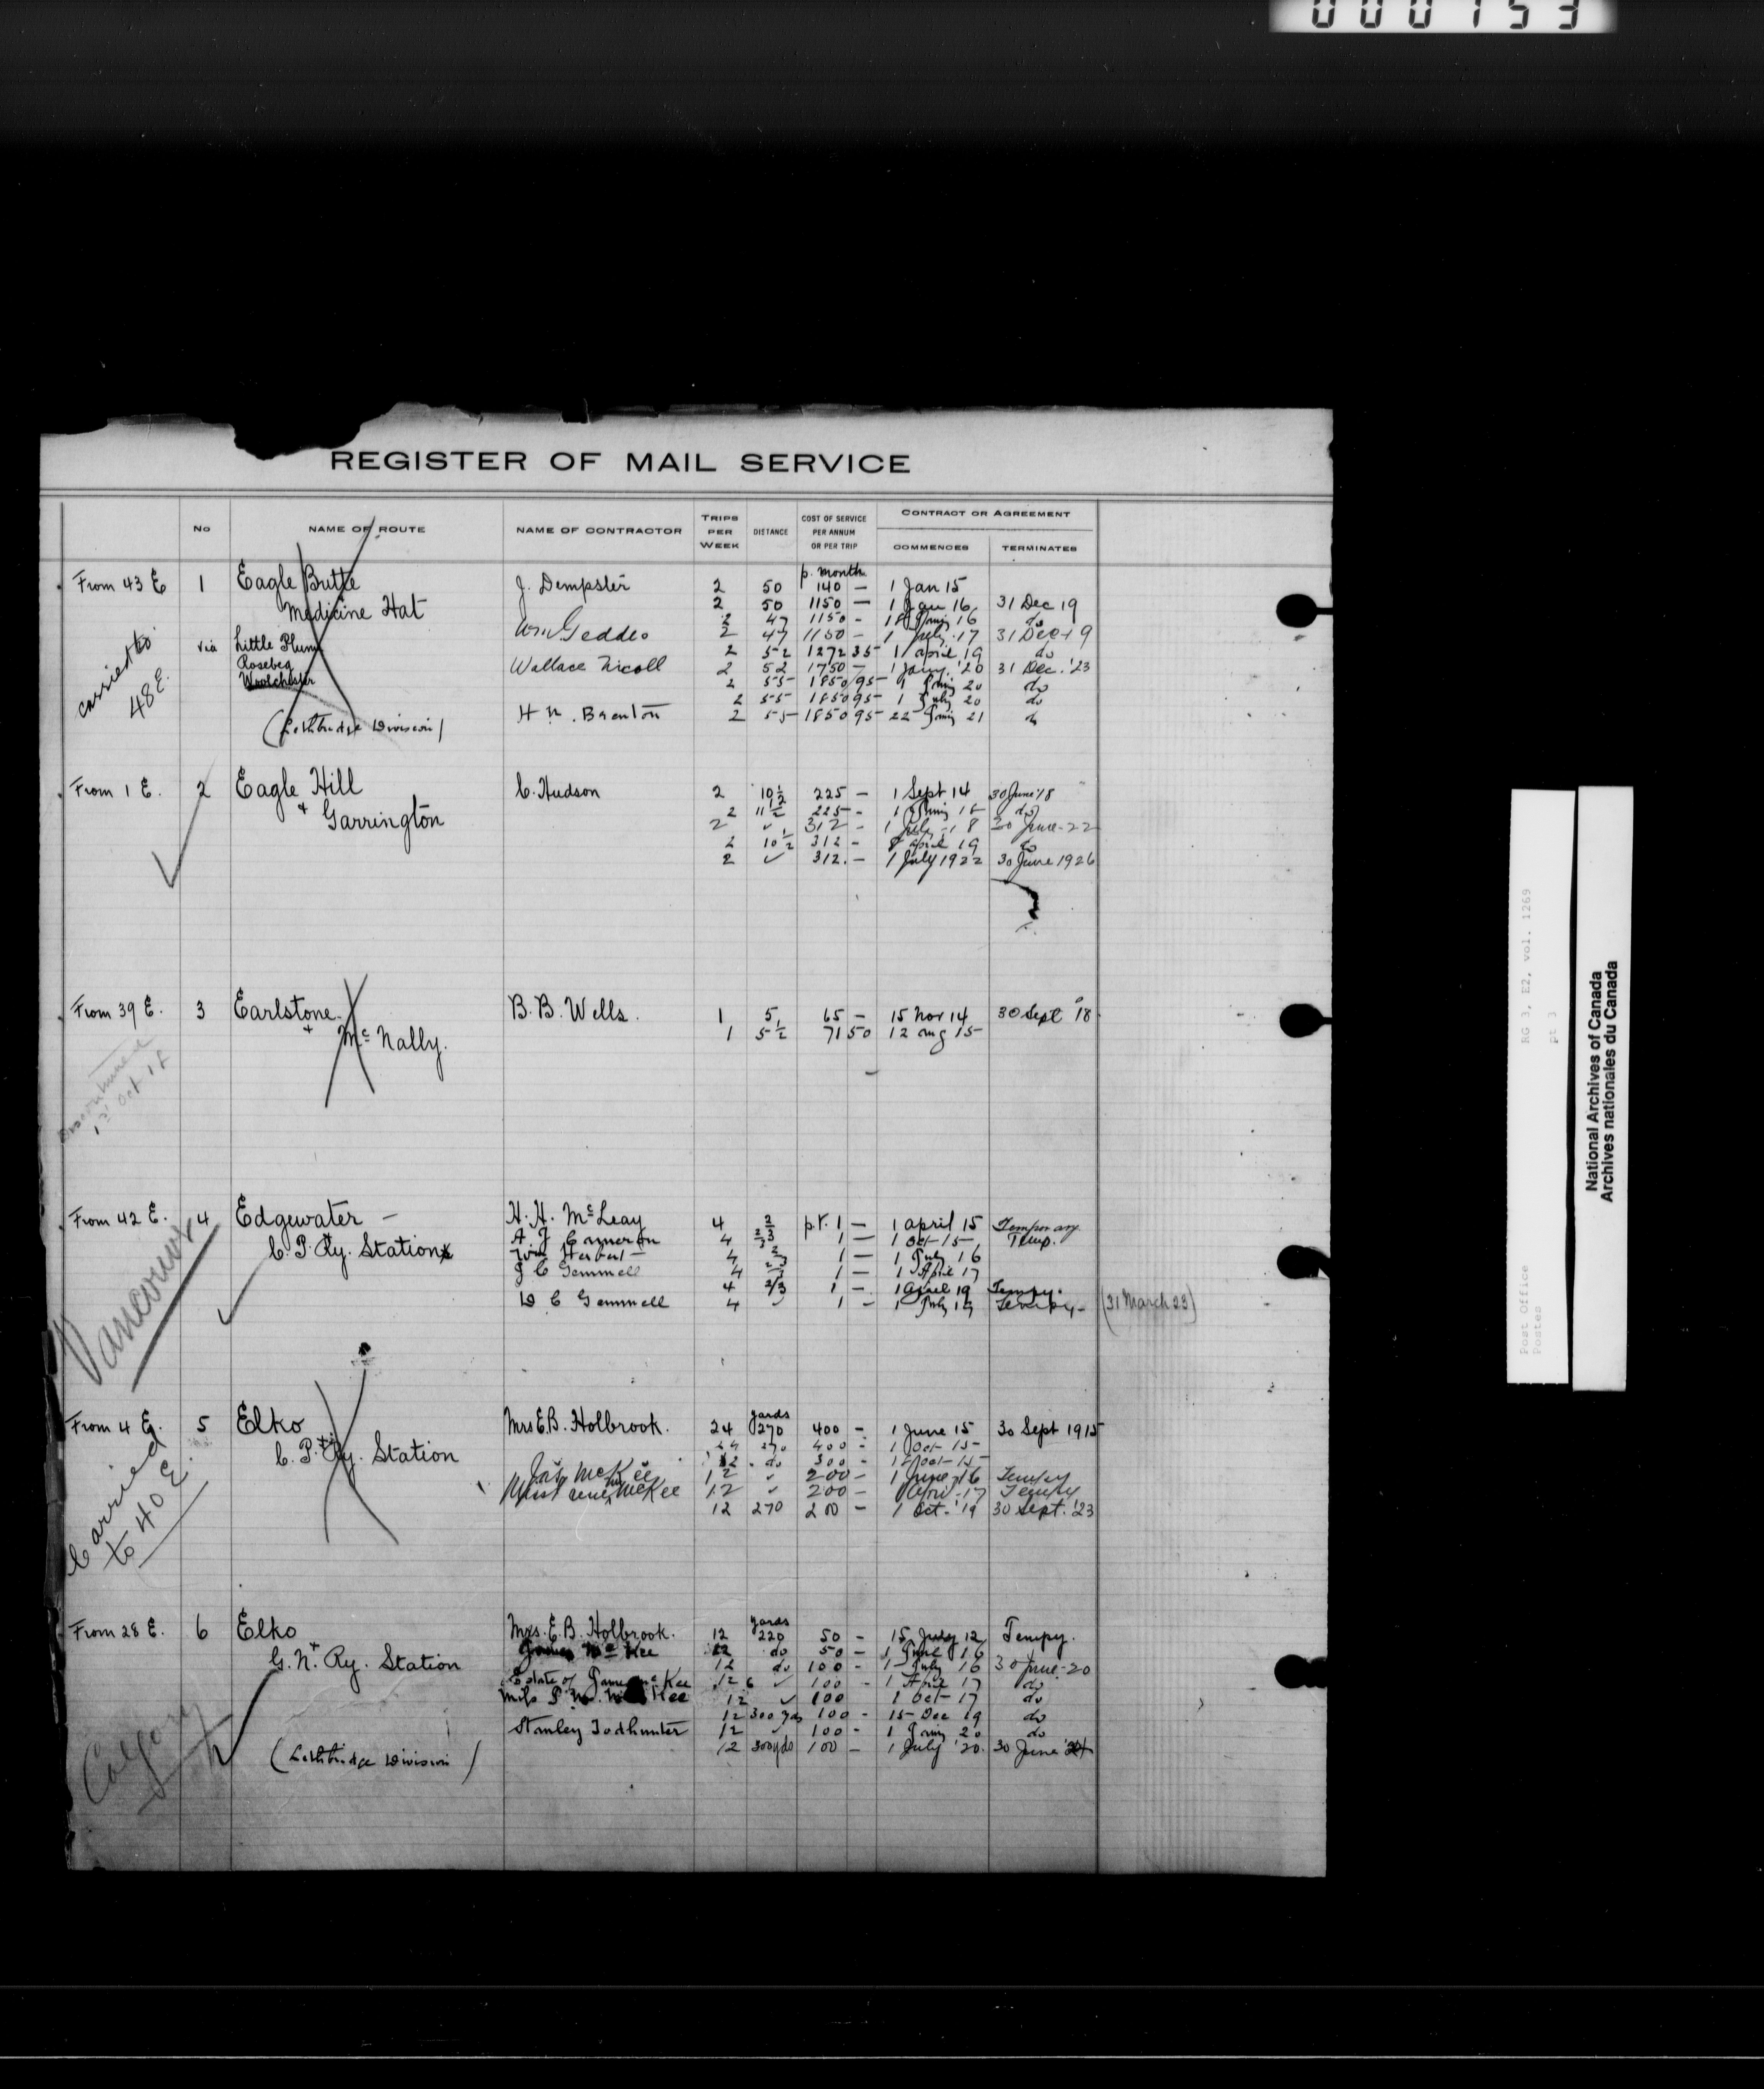 000153
REGISTER OF MAIL SERVICE
No NAME OF ROUTE NAME OF CONTRACTOR TRIPS PER WEEK DISTANCE COST OF SERVICE PER ANNUM OR PER TRIP CONTRACT OR AGREEMENT
COMMENCES TERMINATES
p. month
From 43 E 1 Eagle Butte J. Dempster 2 50 140 — 1 Jan 15
Medicine Hat 2 50 1150 — 1 Jan 16 31 Dec 19
2 47 1150 - 16 do
via Little Plume Wm Geddes 2 47 1150 - 1 July 17 31 Dec 19
carried to 48 E. 2 52 1272 35 1 april 19 do
Rosebeg Wallace Nicoll 2 52 1750 — 1 Jany. '20 31 Dec. '23
Woolchester 2 55 1850 95 20 do
2 55 1850 95 1 July 20 do
(Lethbridge Division) H N. Brenton 2 55 1850 95 22 21 do
From 1 E. 2 Eagle Hill C. Hudson 2 10 1/2 225 — 1 Sept 14 30 June '18
+ Garrington 2 11 1/2 225 - do
2 ✓ 312 - 1 July 18 30 June 22
2 10 1/2 312 - 8 april 19 do
2 ✓ 312. — 1 July 1922 30 June 1926
From 39 E. 3 Earlstone B. B. Wells. 1 5 65 — 15 Nov 14 30 Sept '18
+ Mc Nally. 1 5 1/2 71 50 12 aug 15
Discontinued 1st Oct 18
From 42 E. 4 Edgewater — H. H. McLeay 4 2/3 pt. 1 — 1 april 15 Temporary
C. P. Ry. Station A. J. Cameron 4 2/3 1 — 1 Oct 15 Temp.
Wm Herbert 4 1 — 1 July 16
J C Gemmell 4 1 — 1 April 17
4 2/3 1 — 1 april 19 Tempy.
D C Gemmell 4 ✓ 1 - 1 July 19 Tempy - (31 March 23)
Vancouver
yards
From 4 E. 5 Elko Mrs E.B. Holbrook. 24 270 400 — 1 June 15 30 Sept 1915
+ C. P. Ry. Station 24 270 400 - 1 Oct 15
12 do 300 - Oct 15
Jas McKee 12 ✓ 200 — 1 June 16 Tempy
Miss McKee 12 ✓ 200 — April 17 Tempy
12 270 200 — 1 Oct. '19 30 Sept. '23
Carried to 40 E.
yards
From 28 E. 6 Elko Mrs. E. B. Holbrook. 12 220 50 - 15 July 12 Tempy.
+ G. N. Ry. Station James McKee 12 do 50 — 1 June 16
12 do 100 - 1 July 16 30 June 20
Estate of James McKee 12 6 ✓ 100 - 1 April 17 do
Miss Kee 12 ✓ 100 1 Oct 17 do
12 300 yds 100 - 15 Dec 19 do
Stanley Todhunter 12 ✓ 100 - 1 Jany 20 do
(Lethbridge Division) 12 300 yds 100 — 1 July '20. 30 June '24
Calgary
RG 3, E2, vol. 1269
pt 3
Post Office
Postes
National Archives of Canada
Archives nationales du Canada